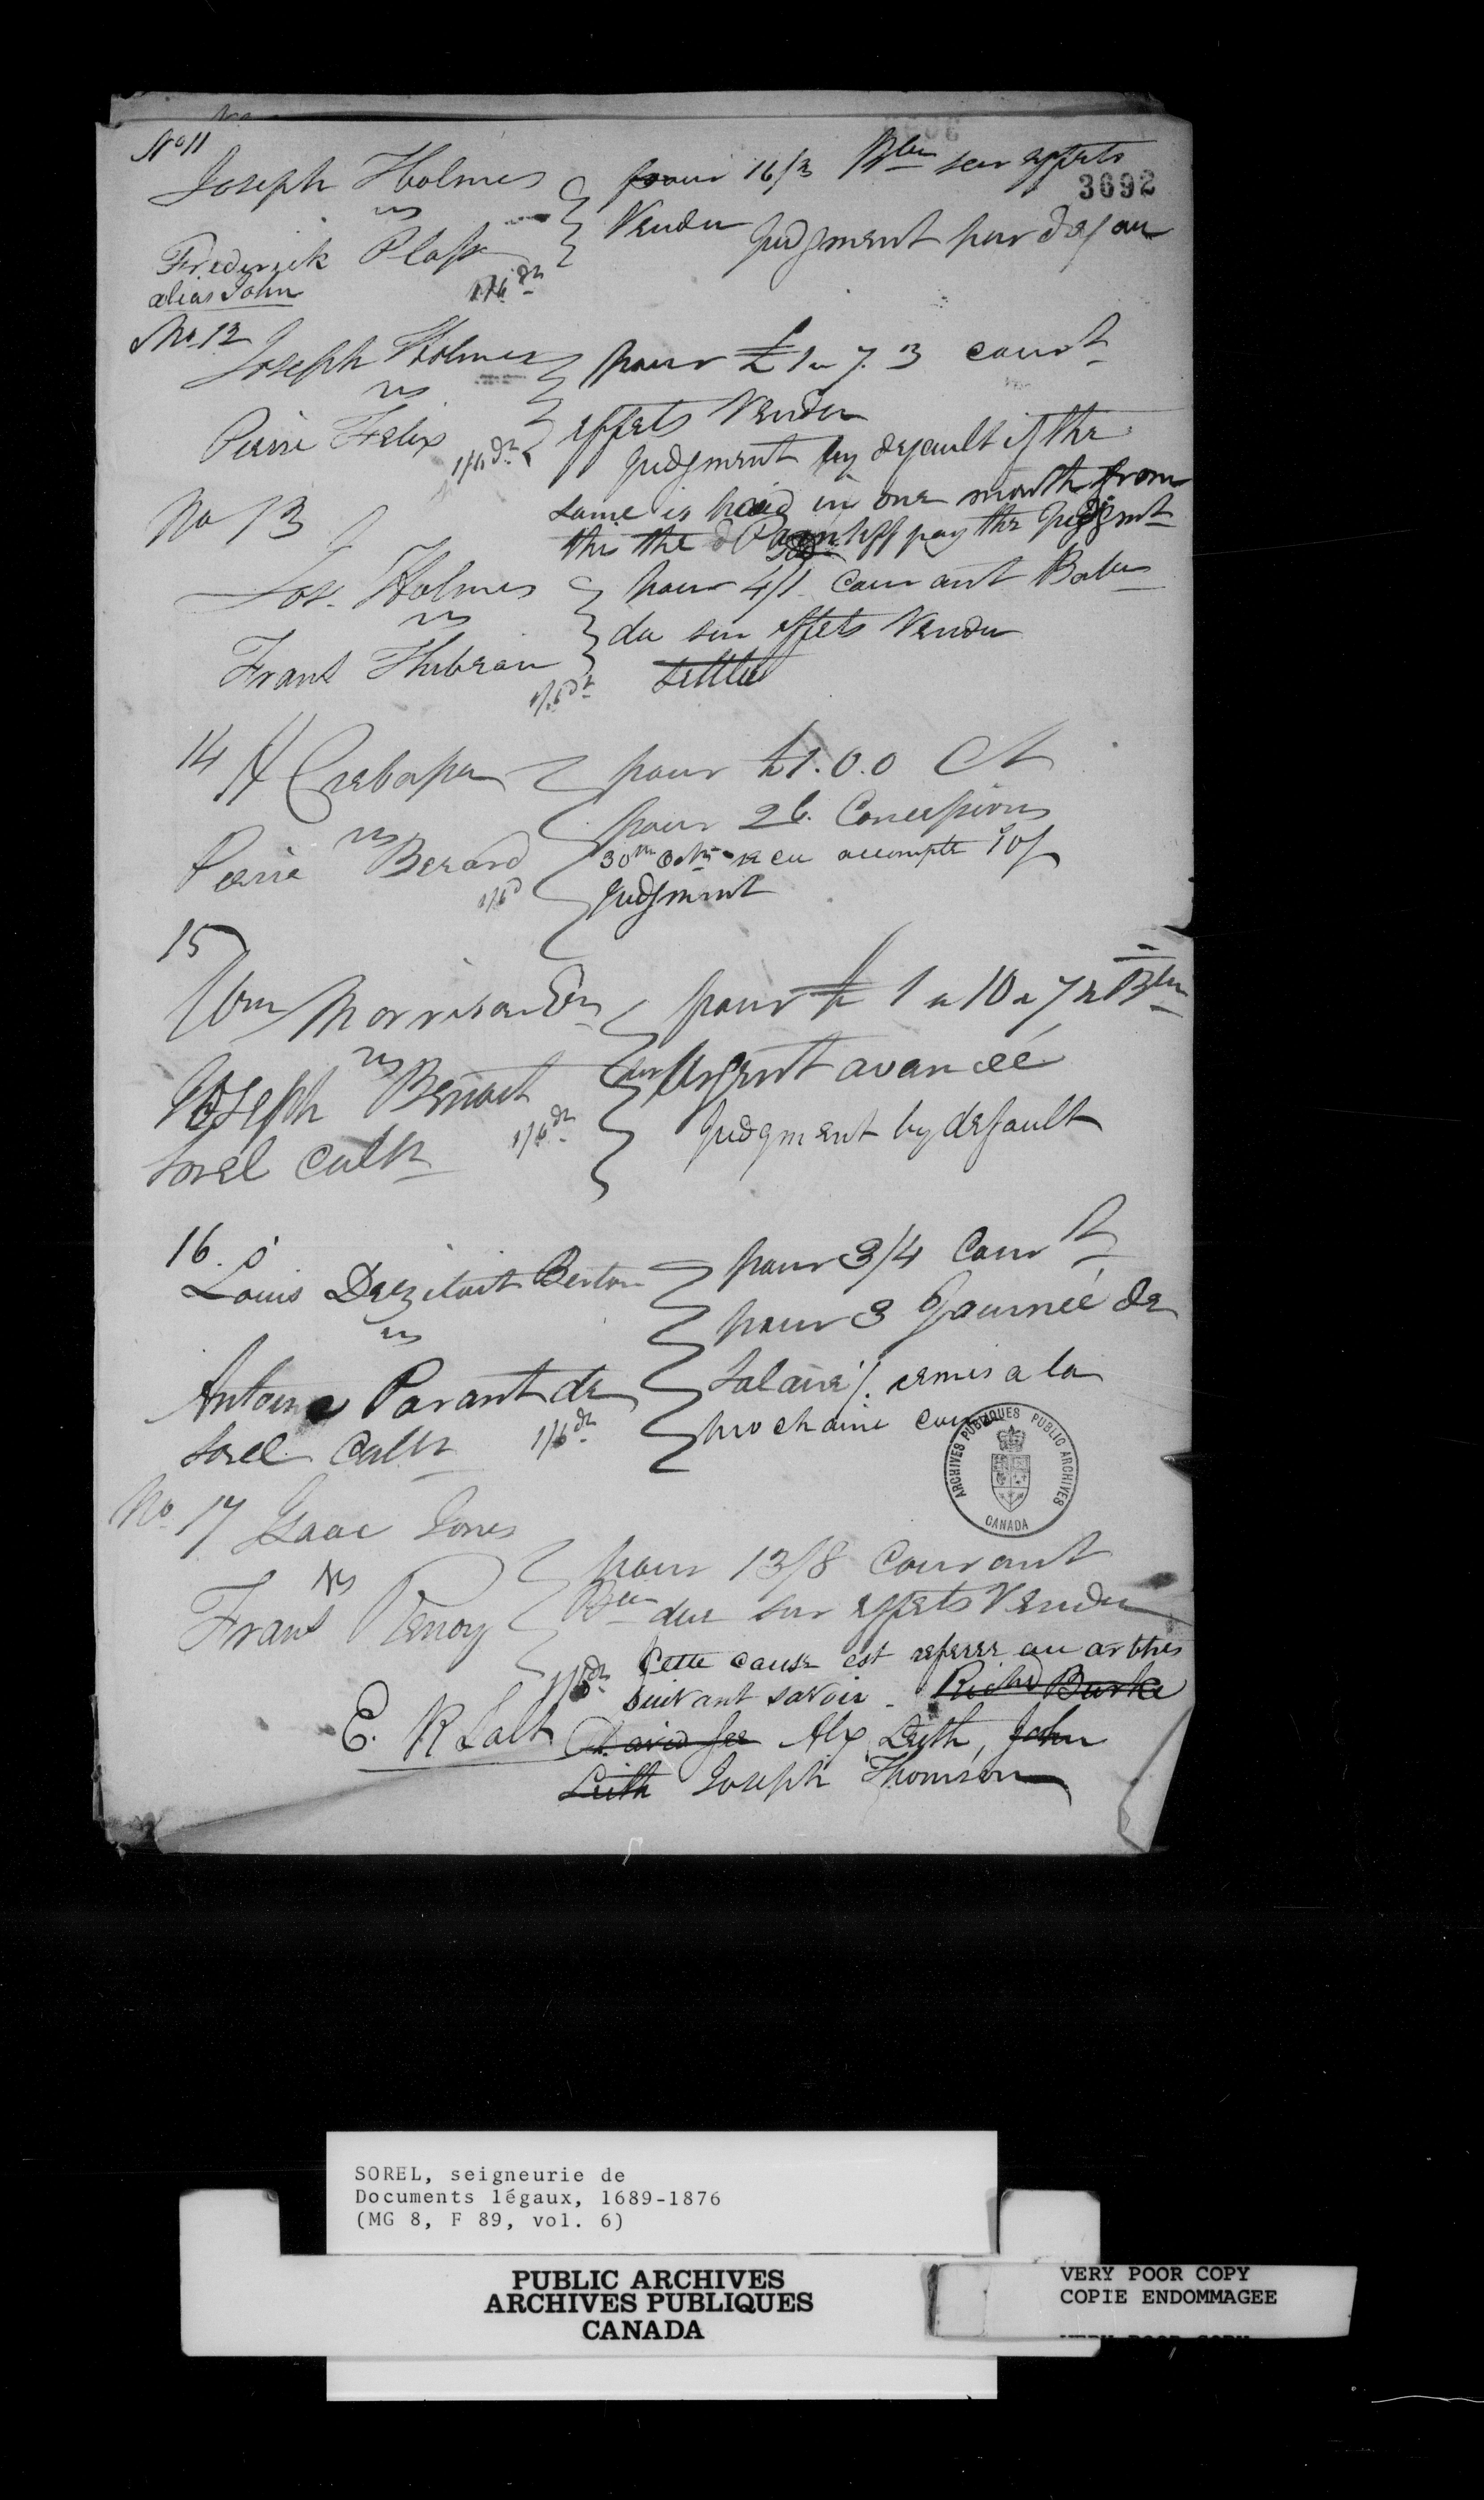 No 11
Joseph Holmes pour 16/3 Blce sur effets
3692
vs Vendu Judgment par defau
Frederick Plass
alias John 1/6 dr
No. 12
Joseph Holmes pour £1 " 7. 3 court
vs effets Vendu
Pierre Felix 1/6 dr Judgment by default if the
same is paid in one month from
the the Plaintiff pay the Judgmt
No 13
Jos. Holmes pour 4/1 courant Balce
vs du sur effets Vendu
Frans Thibeau 1/6 dr settled
14 H Crebassa pour £1. 0. 0 Ct
vs pour 26. Concessions
Pierre Berard 30th Octr recu accompte 10/
1/6 d Judgment
15
Wm Morrison Esr pour £ 1 " 10 " 7½ Blce
vs sur Argent avancée
Joseph Benoit 1/6 dr Judgment by default
Sorel Cultr
16.
Louis Berton pour 3/4 Court
vs pour 3 Journée de
Antoine Parant de Salaire /. remis a la
Sorel Cultr 1/6 dr prochaine cour
ARCHIVES PUBLIQUES PUBLIC ARCHIVES
CANADA
No. 17 Isaac Jones
vs pour 13/8 Courant
Frans Penoy Blce due sur effets Vendu
1/6 dr Cette cause est referer au arbtres
suivant savoir - Richd Burke
E. R Salt David Alx Leith, John
Leith Joseph Thomson
SOREL, seigneurie de
Documents légaux, 1689-1876
(MG 8, F 89, vol. 6)
PUBLIC ARCHIVES
ARCHIVES PUBLIQUES
CANADA
VERY POOR COPY
COPIE ENDOMMAGEE
VERY POOR COPY